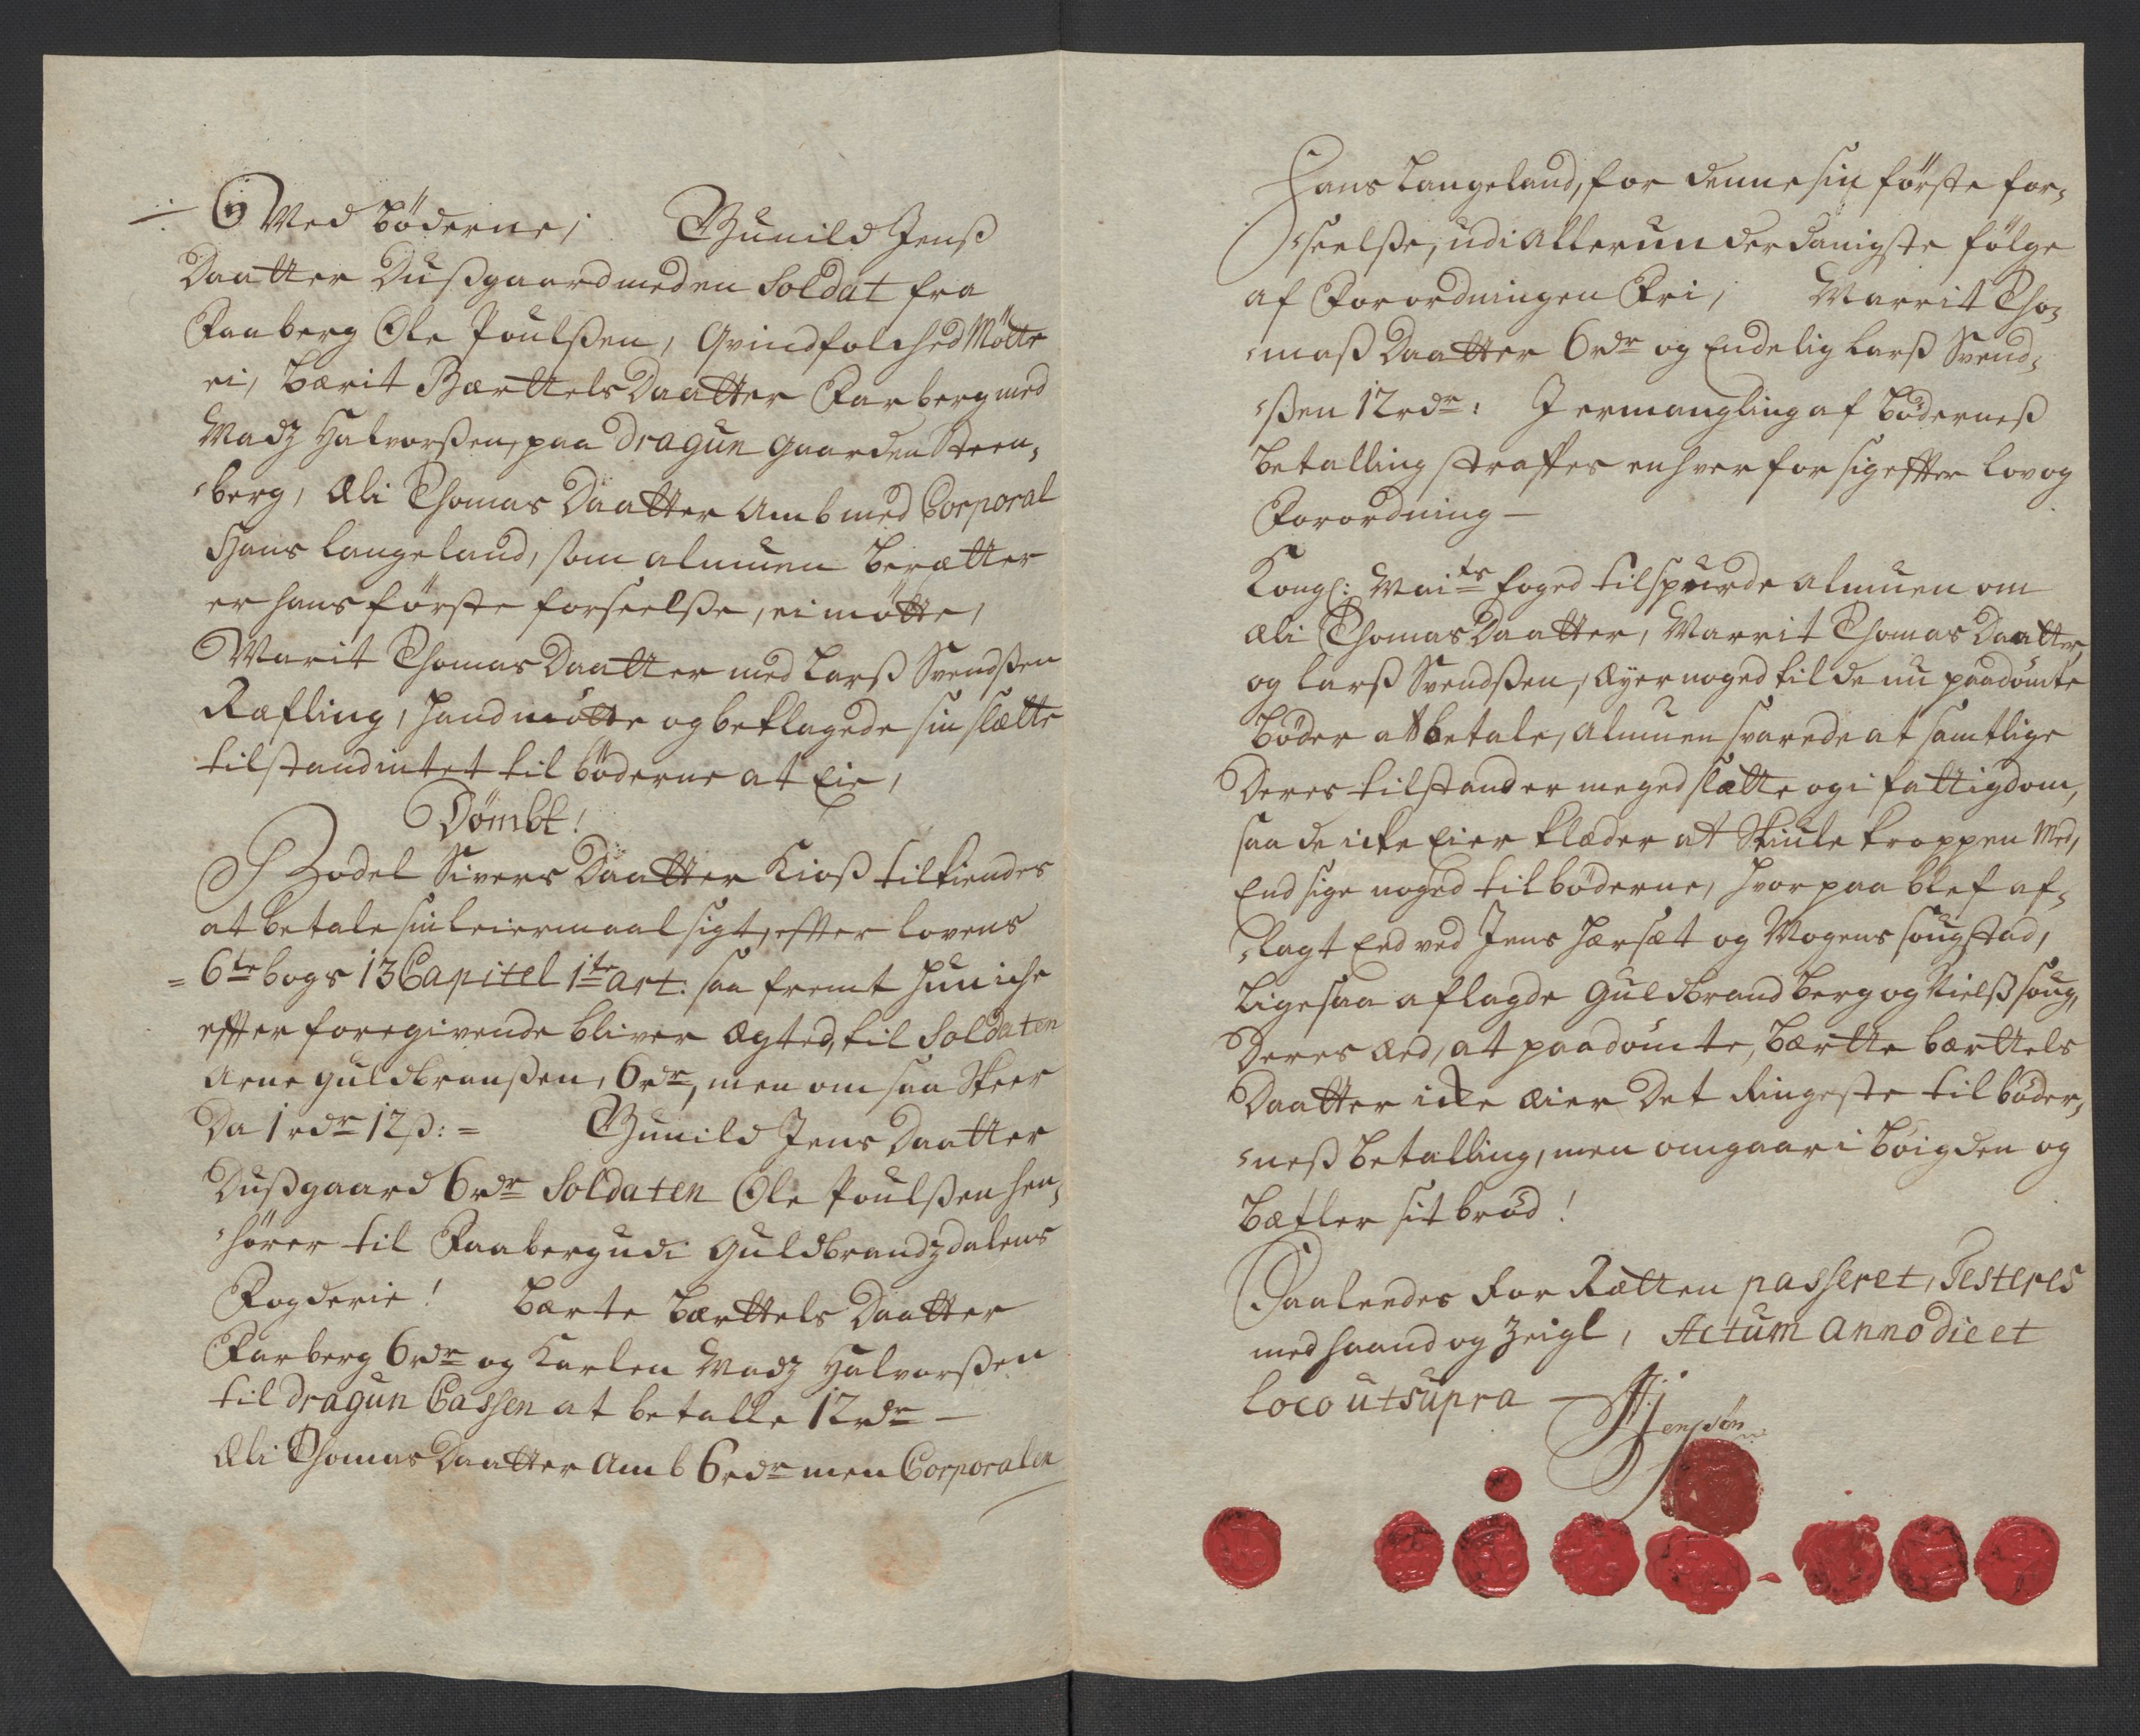 Ved bøderne, Gunild Jenß
Daatter Dußgaard med en Soldat fra
Faaberg Ole Poulßen, Qvindfolched Møtte
ei, Bærit Bærttels Daatter Farberg med
Madz Halvorßen, paa Dragun gaarden Steen,
berg, Æli Thomas Daatter Amb med Corporal
Hans Langeland, som almuen berætter
er hans første forseelße, ei møtte,
Marit Thomas Daatter med Larß Svendßen
Ræfling, hand møtte og beklagede sin slætte
tilstand intet til bøderne at Eie,
Dømbt!
Bodel Sivers Daatter Kioß tilkiendes
at betale sin leiermaal sigt, effter lovens
= 6te bogs 13 Capitel 1te art: saa fremt hun iche
effter foregivende bliver Ægted, til Soldaten
Arne guldbranßen, 6 rdr, men om saa skeer
Da 1 rdr 12 ß: = Gunild Jens Daatter
Dußgaard 6 rdr Soldaten Ole Poulßen hen,
hører til Faaberg udi Guldbrandzdalens
Fogderie! Bærte Bærttels Daatter
Farberg 6 rdr og Karlen Madz Halvorßen
til Dragun Cassen at betalle 12 rdr —
Æli Thomas Daatter Amb 6 rdr men Corporalen
Hans Langeland, for denne sin første for,
seelße, udi Allerunderdanigste følge
af Forordningen Fri, Marrit Tho,
maß Daatter 6 rdr og Endelig Larß Svend,
ßen 12 rdr: I ermangling af bøderneß
betalling straffes enhver for sig effter lov og
Forordning —
Kongl: Maits foged tilspurde almuen om
Æli Thomas Daatter, Marrit Thomas Daatter,
og Larß Svendßen, Æyer noged til de nu paadømte
bøder at betale, almuen svarede at samtlige
Deres tilstand er meged slætte og i fattigdom,
saa de icke Eier klæder at skiule kroppen med,
End sige noged til bøderne, hvorpaa blef af,
lagt Eed ved Jens Hærsæt og Mogens Sougstad,
ligesaa aflagde Guldbrand Berg og Nielß Soug,
Deres Æd, at paadømte, Bærtte Bærttels
Daatter icke Æier det Ringeste til bøder,
neß betalling, men omgaar i bøigden og
bætler sit brød!
Saaledes for Rætten passeret, Testeres
med haand og Zeigl, Actum Anno die et
loco ut supra — Jenssøn